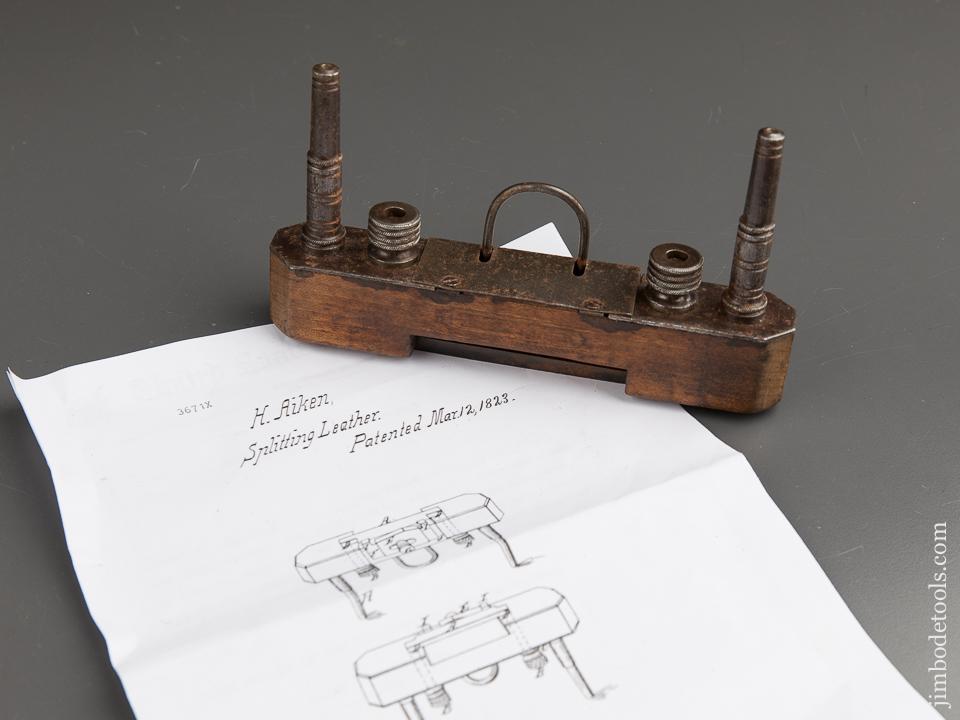 3671X
H. Aiken,
Splitting Leather.
Patented Mar. 12, 1823.
jimbodetools.com